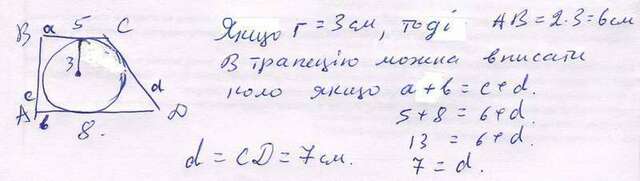 B a 5 C
Якщо r = 3 см, тоді AB = 2·3 = 6 см
3
c d
В трапецію можна вписати
коло якщо a + b = c + d.
A b 8. D
5 + 8 = 6 + d.
13 = 6 + d.
d = CD = 7 см. 7 = d.